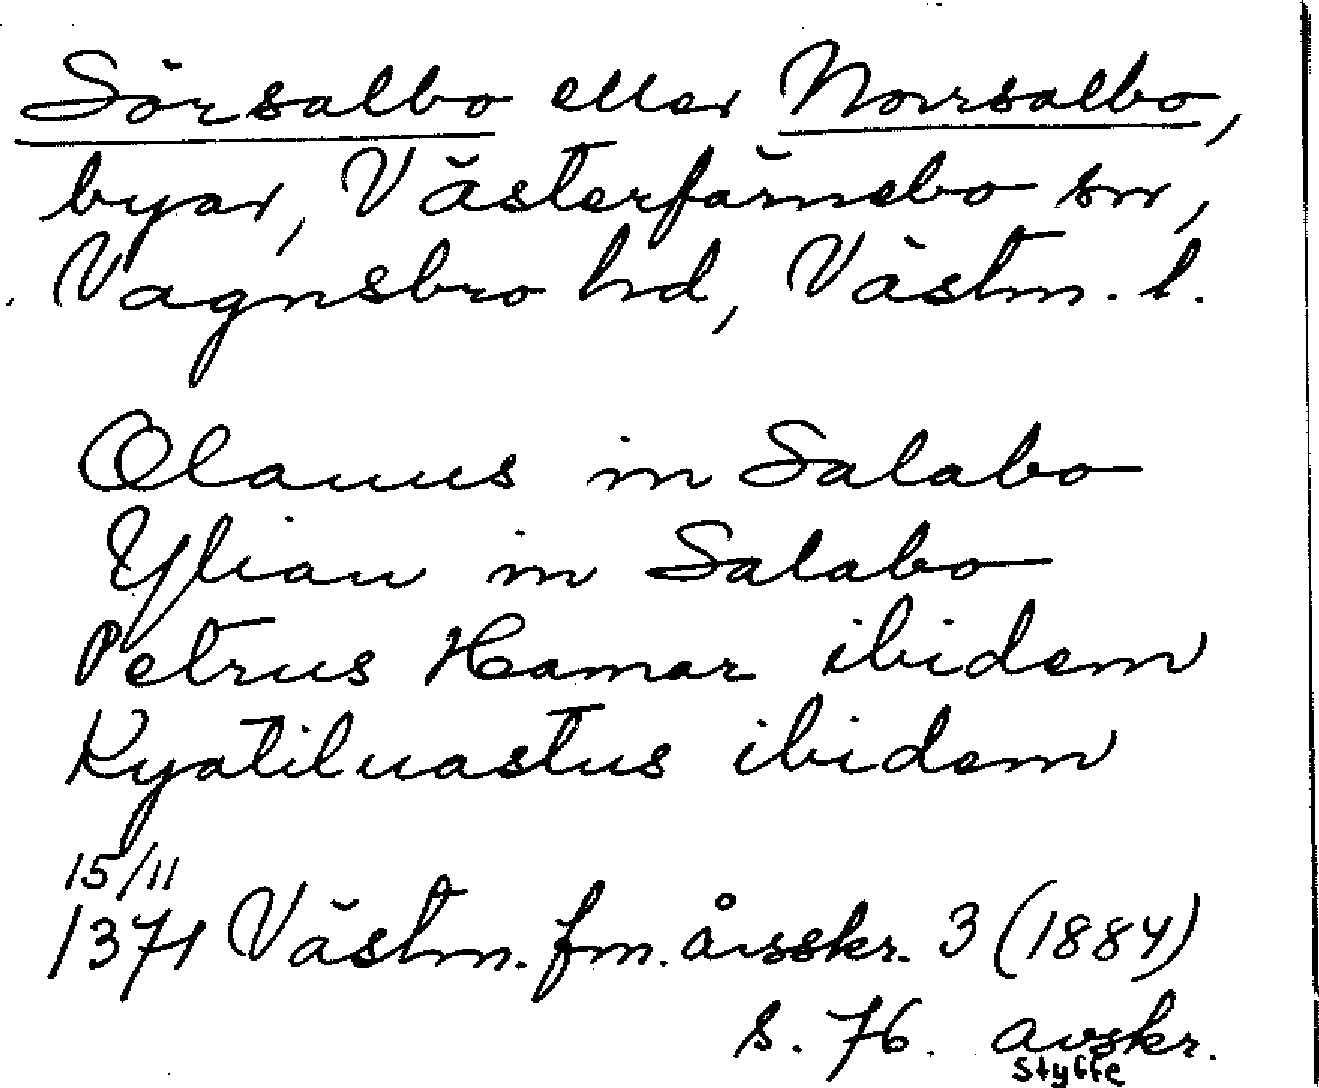 Sörsalbo eller Norrsalbo,
byar, Västerfärnebo sn,
Vagnsbro hd, Västm. l.
Olauus in Salabo
Ylian in Salabo
Petrus Hamar ibidem
Kyatiluastus ibidem
15/11
1371 Västm. fm. årsskr. 3 (1884)
s. 76. avskr.
Styffe